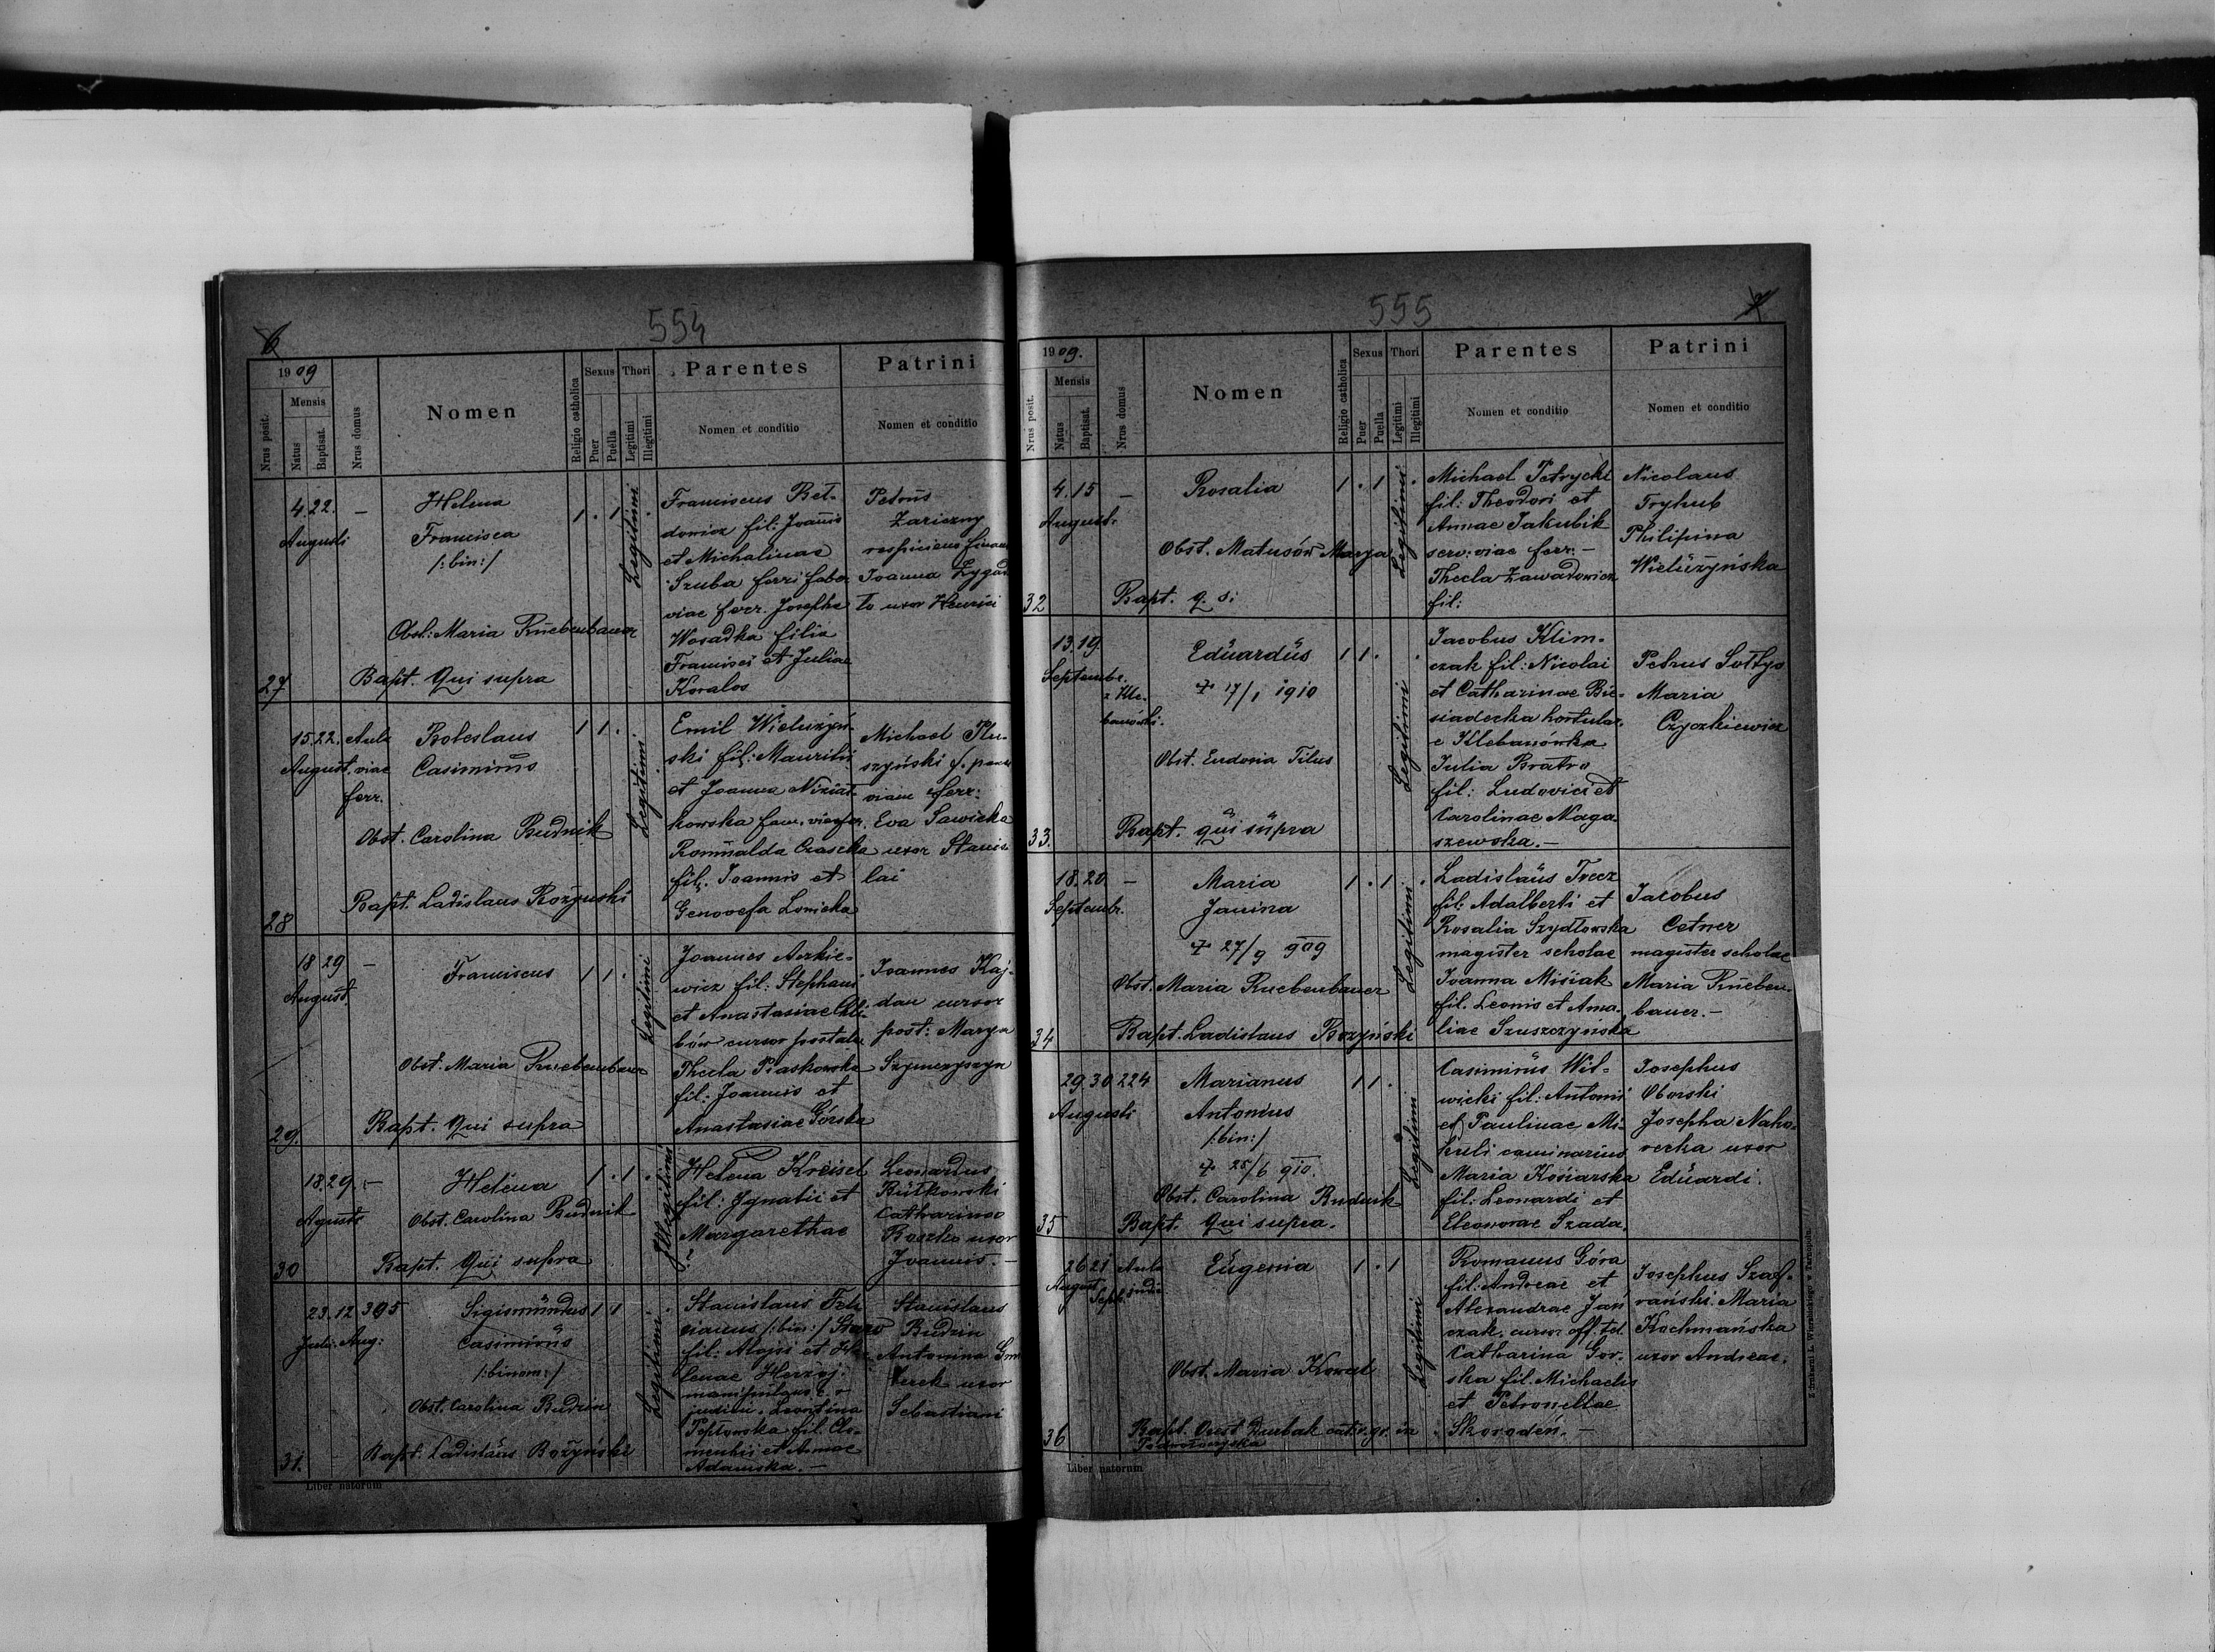 554
6
1909
Nrus posit.
Mensis
Natus
Baptisat.
Nrus domus
Nomen
Religio catholica
Sexus
Puer
Puella
Thori
Legitimi
Illegitimi
Parentes
Nomen et conditio
Patrini
Nomen et conditio
27
4. 22.
Augusti
—
Helena
Francisca
/:bin:/
Obst: Maria Rüebenbauer
Bapt. Qui supra
1 . 1 .
Legitimi
Franciscus Bet-
dowicz fil: Joannis
et Michalinae
Szuba ferri faber
viae ferr. Josepha
Wosadka filia
Francisci et Juliae
Koralos
Petrus
Zariczny
respiciens
Joanna
to uxor Henrici
28
15. 22.
August.
Aula
viae
ferr.
Boleslaus
Casimirus
Obst. Carolina Budnik
Bapt. Ladislaus Bożyński
1 1 .
Legitimi
Emil Wielużyń-
ski fil: Mauritii
et Joanna Niziat-
kowska fam. viae fer.
Romualda Czaszka
fil. Joannis et
Genovefa Lonicka
Michael Plu-
szyński
viam ferr:
Eva Sawicka
uxor Stanis-
lai
29.
18 29
August
—
Franciscus
Obst. Maria Ruebenbauer
Bapt. Qui supra
1 1 .
Legitimi
Joannes Aezkie-
wicz fil: Stephani
et Anastasiae Chle-
bów cursor postalis
Thecla Piaskowska
fil: Joannis et
Anastasiae Górska
Joannes Kaj-
dan cursor
post: Marya
Szymczyszyn
30
18. 29.
Agusti
—
Helena
Obst. Carolina Budnik
Bapt. Qui supra
1 . 1 .
Illegitimi
Helena Kreisel
fil: Ignatii et
Margarethae
?
Leonardus
Rutkowski
Catharina
Baszko uxor
Joannis. —
31.
23. 12.
Julii. Aug:
395
Sigismundus
Casimirus
/:binom:/
Obst. Carolina Budzin
Bapt. Ladislaus Bożyński
1 1 . .
Legitimi
Stanislaus Feli-
cianus /:bin:/ Staro
fil: Alojsi et He-
lenae Herzöj:
manipulans c. r
judicii. Leontina
Peplowska fil. Cle-
mentii et Annae
Adamska. —
Stanislaus
Budzin
Antonina
uxor
Sebastiani
Liber natorum
555
7
1909.
Nrus posit.
Mensis
Natus
Baptisat.
Nrus domus
Nomen
Religio catholica
Sexus
Puer
Puella
Thori
Legitimi
Illegitimi
Parentes
Nomen et conditio
Patrini
Nomen et conditio
32
4. 15
August.
—
Rosalia
Obst. Matusów Marya
Bapt. q. s:
1 . 1 .
Legitimi
Michael Petrycki
fil: Theodori et
Annae Jakubik
serv: viae ferr. —
Thecla Zawadowicz
fil:
Nicolaus
Tryhub
Philipina
Wielużyńska
33.
13. 19.
Septembr.
z Kle-
banówki.
Eduardus
+ 17/1 1910
Obst. Eudonia Titus
Bapt. qui supra
1 1 . .
Legitimi
Jacobus Klim-
czak fil: Nicolai
et Catharinae Bie-
siadecka hortular.
e Klebanówka
Julia Bratro
fil: Ludovici et
Carolinae Naga-
szewska. —
Petrus Sołtys
Maria
Czyczkiewicz
34
18. 20
Septembr.
—
Maria
Janina
+ 27/9 909
Obst. Maria Ruebenbauer
Bapt. Ladislaus Bożyński
1 . 1 .
Legitimi
Ladislaus Trecz
fil: Adalberti et
Rosalia Szydłowska
magister scholae
Joanna Misiak
fil. Leonis et Ama-
liae Szuszczynska
Jacobus
Cetner
magister scholae
Maria Rüeben-
bauer. —
35
29. 30
Augusti
224
Marianus
Antonius
/:bin:/
+ 25/6 910.
Obst. Carolina Budnik
Bapt. Qui supra.
1 1 .
Legitimi
Casimirus Wil-
wicki fil: Antonii
et Paulinae Mi-
kuli caminarius
Maria Kosiarska
fil: Leonardi et
Eleonorae Szada.
Josephus
Oborski
Josepha Naho-
recka uxor
Eduardi.
36
26 21
August.
Sept.
Aula
judi:
Eugenia
Obst. Maria Kowal
Bapt. Orest Durbak cath. r. gr. in
Podwołoczyska
1 . 1
Legitimi
Romanus Góra
fil: Andreae et
Alexandrae Jań
czak, cursor off. tel.
Catharina Gór-
ska fil. Michaelis
et Petronellae
Skorodeń. —
Josephus Szaf-
rański. Maria
Kochmańska
uxor Andreae.
Liber natorum
Z drukarni L. Wierzbickiego w Tarnopolu.